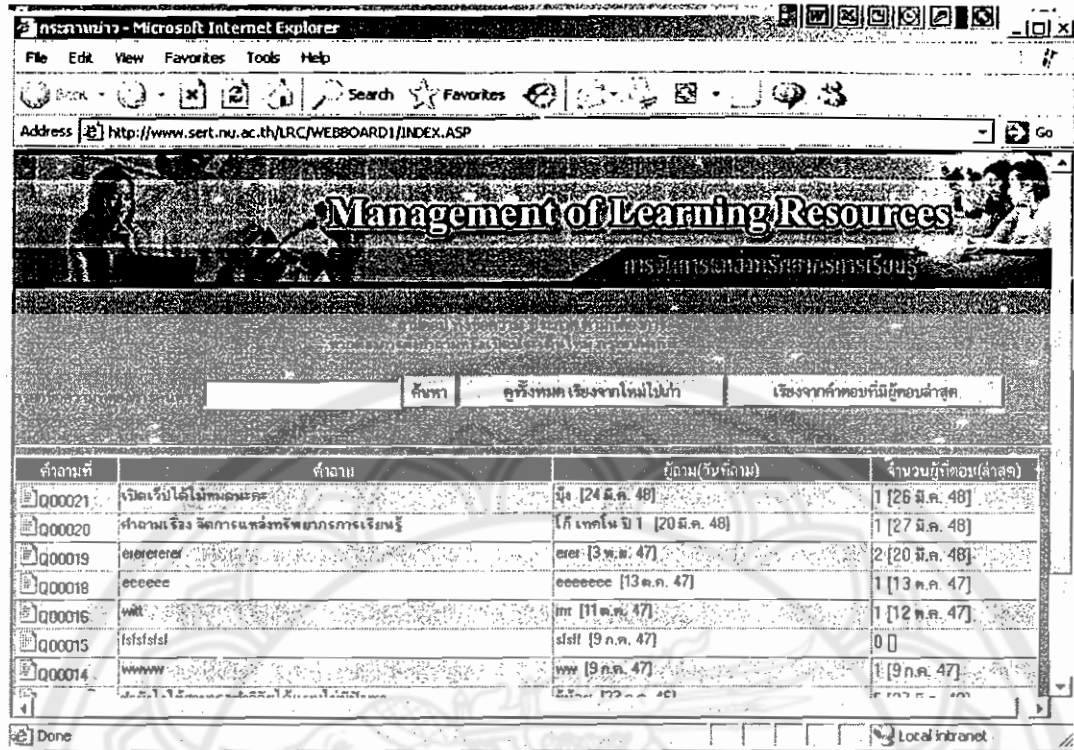 กระดานข่าว - Microsoft Internet Explorer
File Edit View Favorites Tools Help
Back Search Favorites
Address http://www.sert.nu.ac.th/LRC/WEBBOARD1/INDEX.ASP Go
Management of Learning Resources
การจัดการแหล่งทรัพยากรการเรียนรู้
ค้นหา ดูทั้งหมด เรียงจากใหม่ไปเก่า เรียงจากคำตอบที่มีผู้ตอบล่าสุด
คำถามที่ คำถาม ผู้ถาม(วันที่ถาม) จำนวนผู้ที่ตอบ(ล่าสุด)
Q00021 เปิดเว็บได้ไม่หมดนะคะ [24 มี.ค. 48] 1 [26 มี.ค. 48]
Q00020 คำถามเรื่อง จัดการแหล่งทรัพยากรการเรียนรู้ โก้ เทคโน ปี 1 [20 มี.ค. 48] 1 [27 มี.ค. 48]
Q00019 erer [3 พ.ย. 47] 2 [20 มี.ค. 48]
Q00018 eeeeee eeeeeee [13 ต.ค. 47] 1 [13 ต.ค. 47]
Q00016 1 [12 ต.ค. 47]
Q00015 fsfsfsfsf sfsff [9 ก.ค. 47] 0 []
Q00014 wwwww ww [9 ก.ค. 47] 1 [9 ก.ค. 47]
Done Local intranet